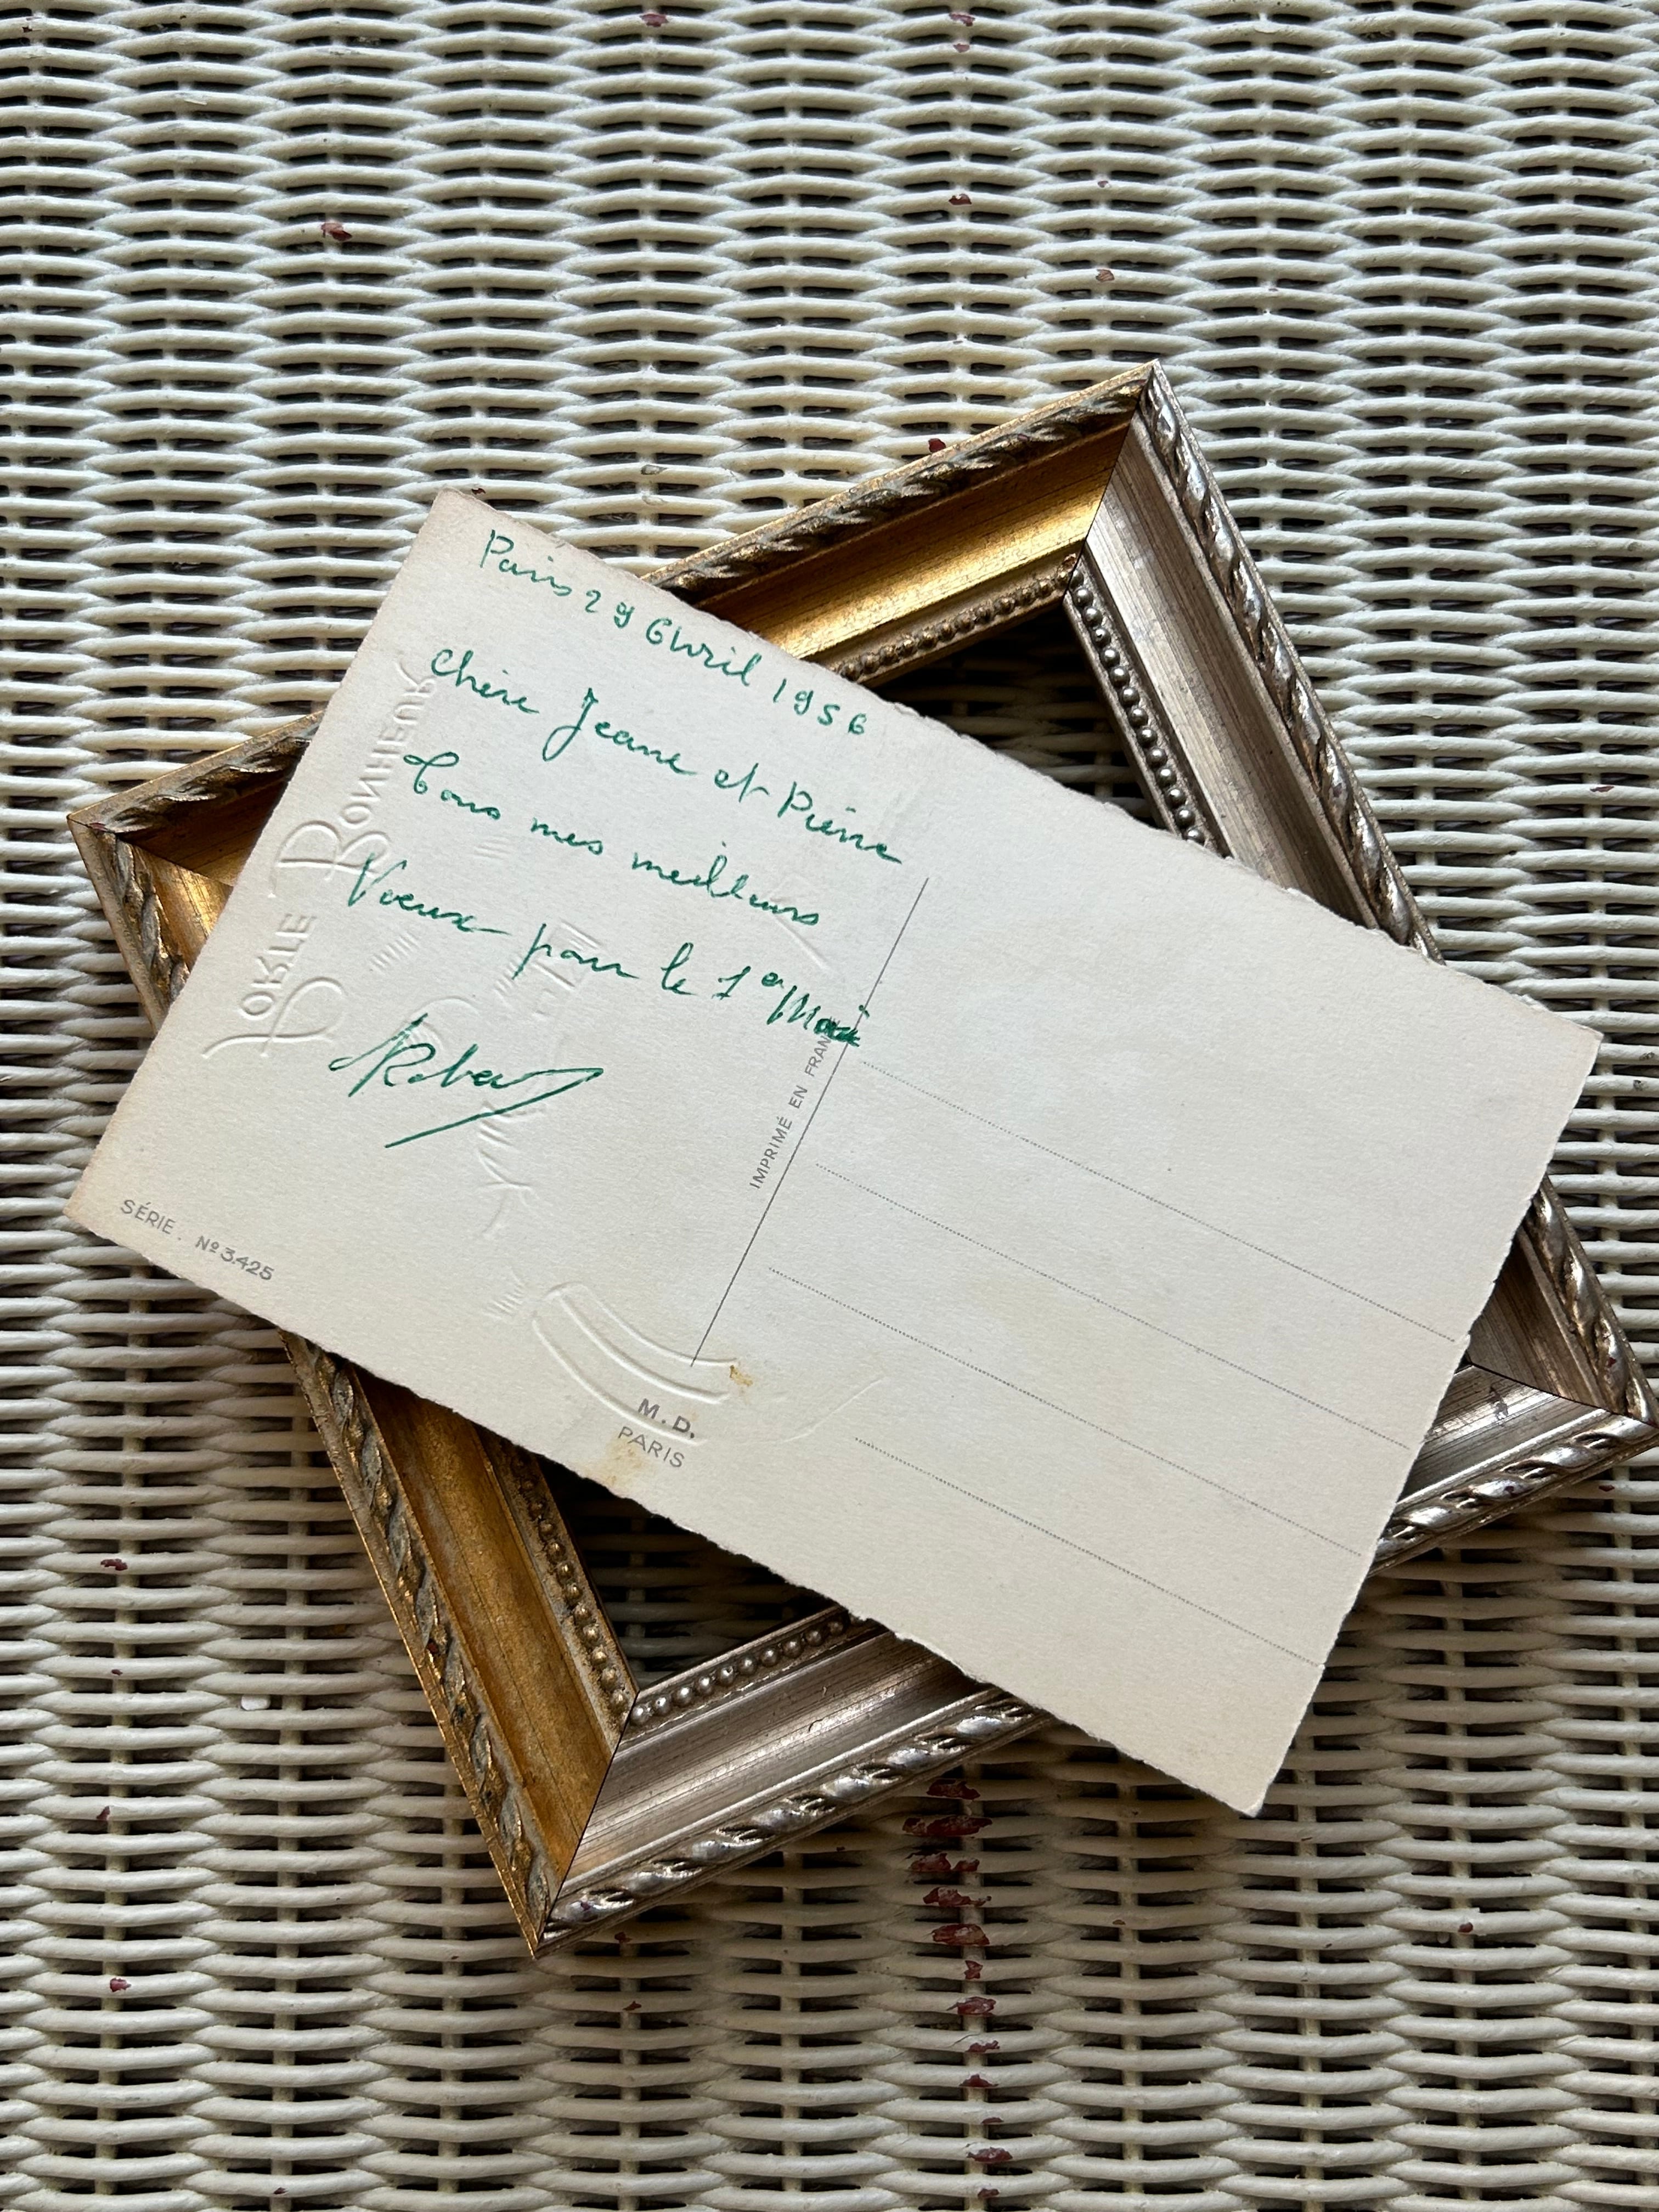 Paris 29 Avril 1956
Chère Jeane et Pierre
Tous mes meilleurs
Voeux pour le 1er Mai
Robert
PORTE BONHEUR
IMPRIMÉ EN FRAN
SÉRIE. Nº 3.425
M.D.
PARIS